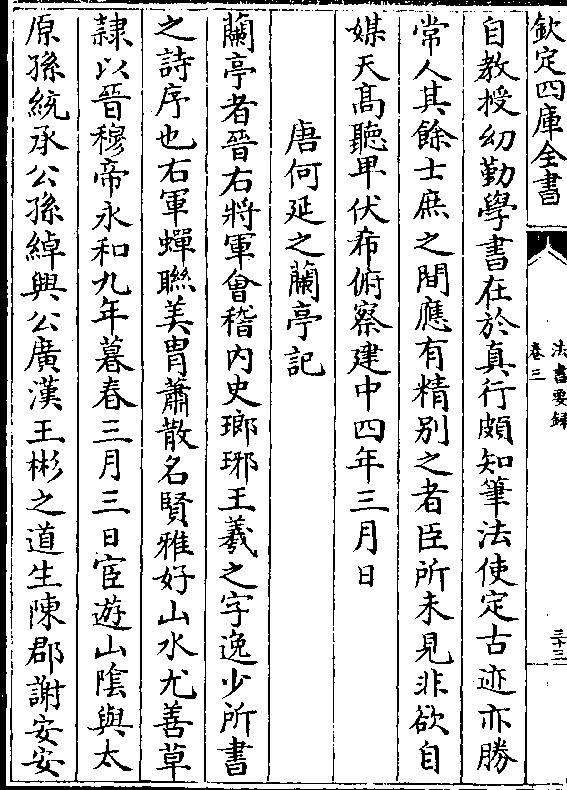 欽定四庫全書
法書要録
卷三
三十三
自教授幼勤學書在於真行頗知筆法使定古迹亦勝
常人其餘士庶之間應有精别之者臣所未見非欲自
媒天髙聽卑伏希俯察建中四年三月日
唐何延之蘭亭記
蘭亭者晉右將軍會稽内史瑯琊王羲之字逸少所書
之詩序也右軍蟬聯美胄蕭散名賢雅好山水尤善草
隸以晉穆帝永和九年暮春三月三日宦遊山隂與太
原孫統承公孫綽興公廣漢王彬之道生陳郡謝安安